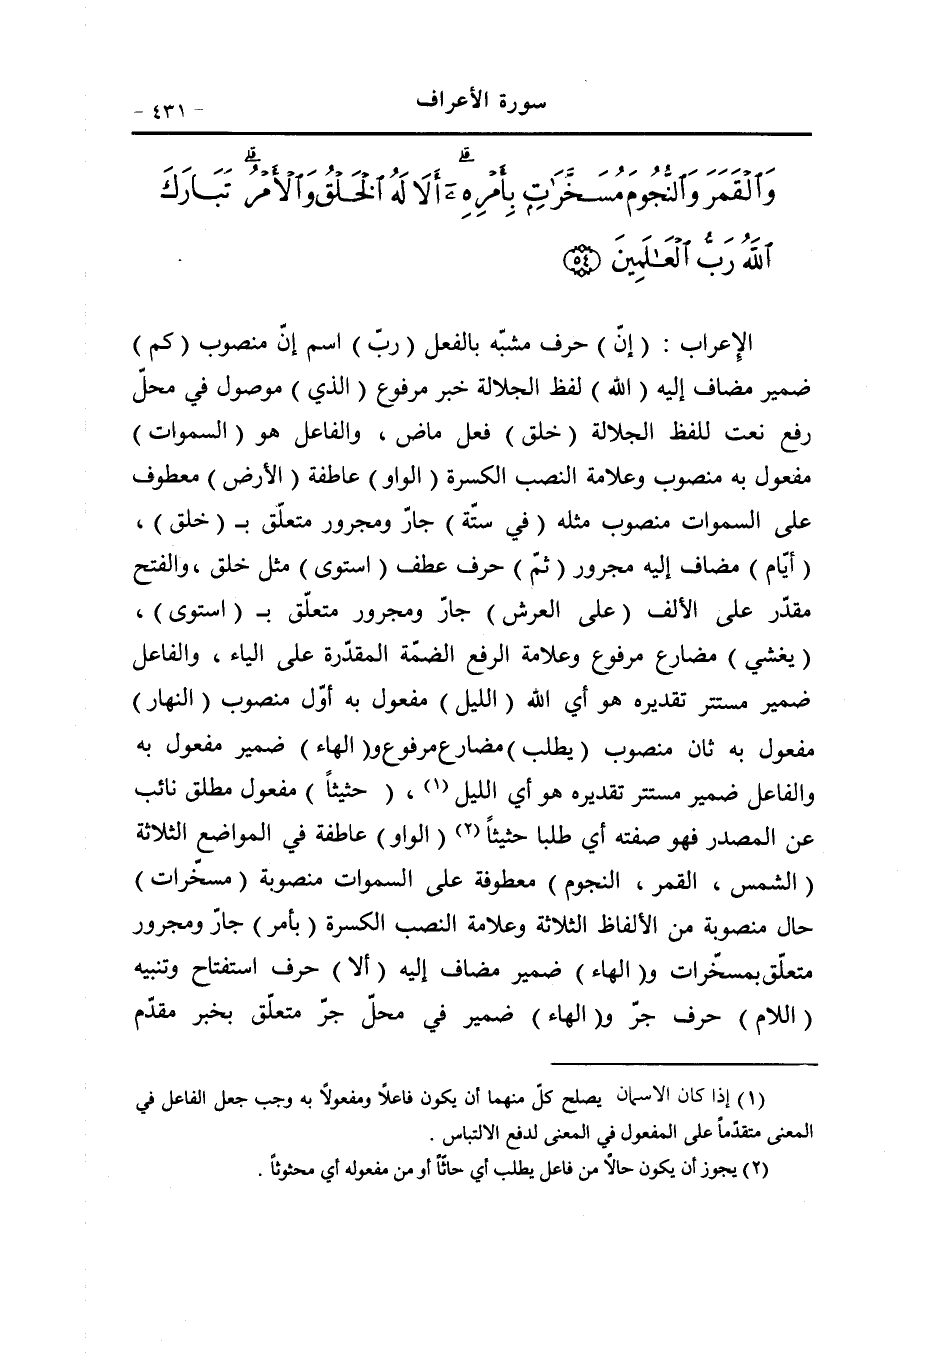 سورة الأعراف
- ٤٣١ -
وَٱلْقَمَرَ وَٱلنُّجُومَ مُسَخَّرَٰتٍۭ بِأَمْرِهِۦٓ ۗ أَلَا لَهُ ٱلْخَلْقُ وَٱلْأَمْرُ ۗ تَبَارَكَ
ٱللَّهُ رَبُّ ٱلْعَـٰلَمِينَ ﴿٥٤﴾
الإعراب : ( إنّ ) حرف مشبّه بالفعل ( ربّ ) اسم إنّ منصوب ( كم )
ضمير مضاف إليه ( الله ) لفظ الجلالة خبر مرفوع ( الذي ) موصول في محلّ
رفع نعت للفظ الجلالة ( خلق ) فعل ماض ، والفاعل هو ( السموات )
مفعول به منصوب وعلامة النصب الكسرة ( الواو ) عاطفة ( الأرض ) معطوف
على السموات منصوب مثله ( في ستّة ) جارّ ومجرور متعلّق بـ ( خلق ) ،
( أيّام ) مضاف إليه مجرور ( ثمّ ) حرف عطف ( استوى ) مثل خلق ، والفتح
مقدّر على الألف ( على العرش ) جارّ ومجرور متعلّق بـ ( استوى ) ،
( يغشي ) مضارع مرفوع وعلامة الرفع الضمّة المقدّرة على الياء ، والفاعل
ضمير مستتر تقديره هو أي الله ( الليل ) مفعول به أوّل منصوب ( النهار )
مفعول به ثان منصوب ( يطلب ) مضارع مرفوع و( الهاء ) ضمير مفعول به
والفاعل ضمير مستتر تقديره هو أي الليل (١) ، ( حثيثاً ) مفعول مطلق نائب
عن المصدر فهو صفته أي طلبا حثيثاً (٢) ( الواو ) عاطفة في المواضع الثلاثة
( الشمس ، القمر ، النجوم ) معطوفة على السموات منصوبة ( مسخّرات )
حال منصوبة من الألفاظ الثلاثة وعلامة النصب الكسرة ( بأمر ) جارّ ومجرور
متعلّق بمسخّرات و( الهاء ) ضمير مضاف إليه ( ألا ) حرف استفتاح وتنبيه
( اللام ) حرف جرّ و( الهاء ) ضمير في محلّ جرّ متعلّق بخبر مقدّم
(١) إذا كان الاسمان يصلح كلّ منهما أن يكون فاعلًا ومفعولًا به وجب جعل الفاعل في
المعنى متقدّماً على المفعول في المعنى لدفع الالتباس .
(٢) يجوز أن يكون حالًا من فاعل يطلب أي حاثّاً أو من مفعوله أي محثوثاً .